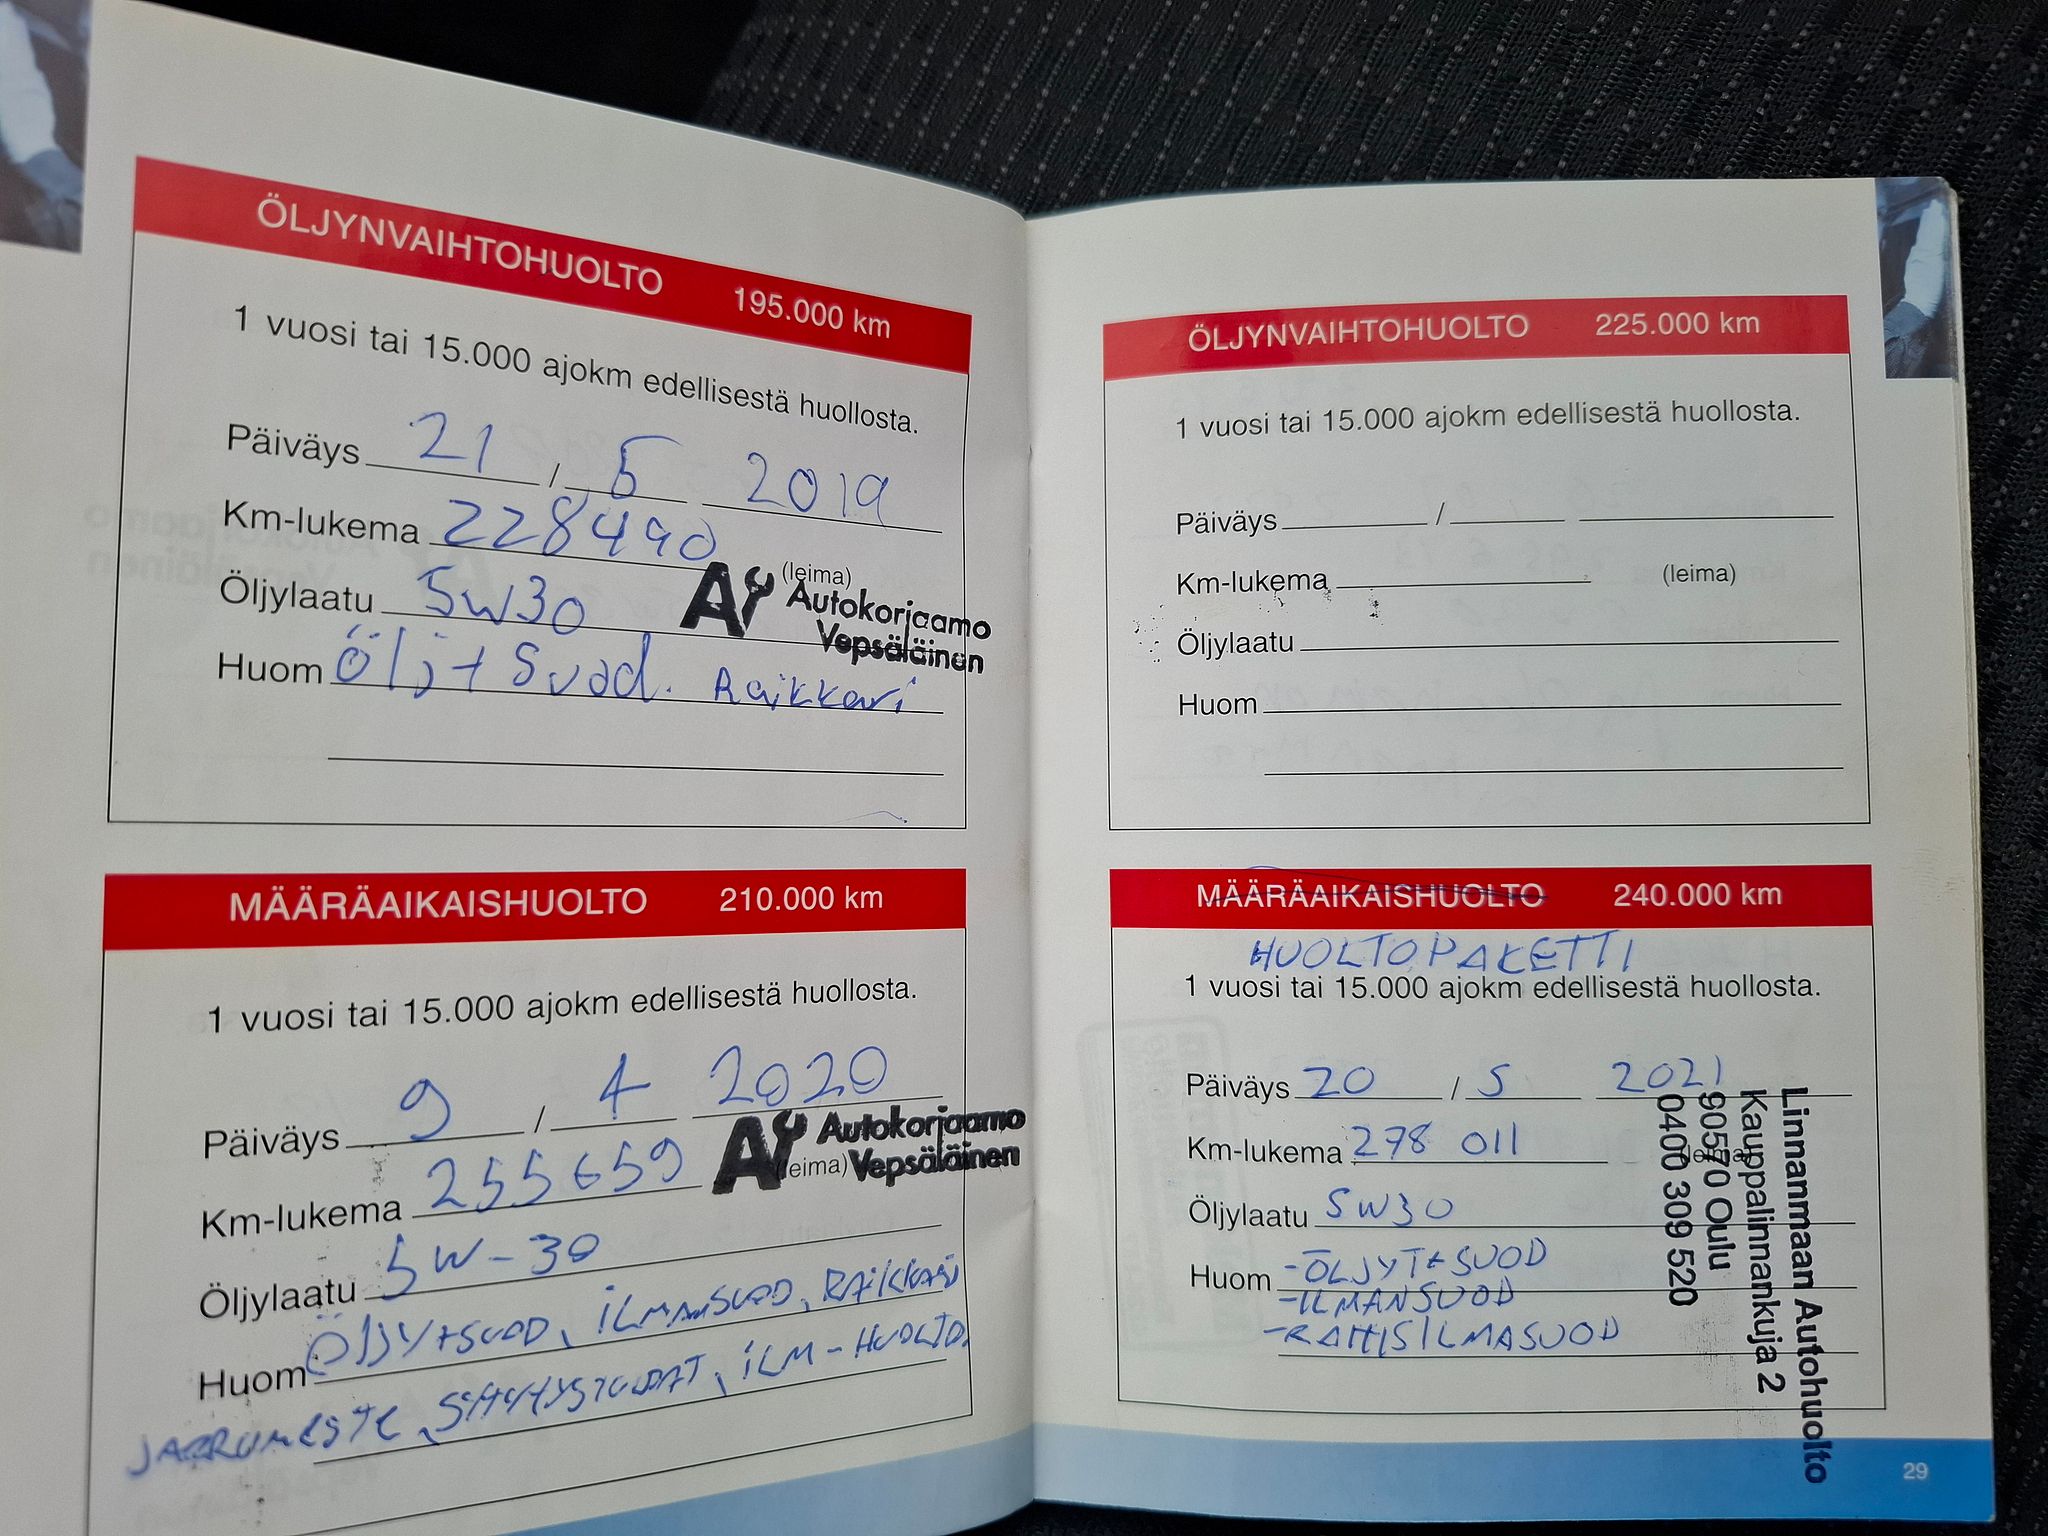 ÖLJYNVAIHTOHUOLTO 195.000 km
1 vuosi tai 15.000 ajokm edellisestä huollosta.
Päiväys 21 / 5 2019
Km-lukema 228490
(leima)
Öljylaatu 5W30
Autokorjaamo
Vepsäläinen
Huom Ölj+Suod. Raikkari
MÄÄRÄAIKAISHUOLTO 210.000 km
1 vuosi tai 15.000 ajokm edellisestä huollosta.
Päiväys 9 / 4 2020
Autokorjaamo
(leima) Vepsäläinen
Km-lukema 255659
Öljylaatu 5W-30
Huom ÖLJY+SUOD, iLMANSUOD, RAiKKARi
JARRUNESTE, SYTYTYSTULPAT, iLM-HUOLTO.
ÖLJYNVAIHTOHUOLTO 225.000 km
1 vuosi tai 15.000 ajokm edellisestä huollosta.
Päiväys /
Km-lukema (leima)
Öljylaatu
Huom
MÄÄRÄAIKAISHUOLTO 240.000 km
HUOLTOPAKETTI
1 vuosi tai 15.000 ajokm edellisestä huollosta.
Päiväys 20 / 5 2021
Km-lukema 278 011 (leima)
Öljylaatu 5W30
Huom -ÖLJYT+SUOD
-ILMANSUOD
-RAITISILMASUOD
Linnanmaan Autohuolto
Kauppalinnankuja 2
90570 Oulu
0400 309 520
29